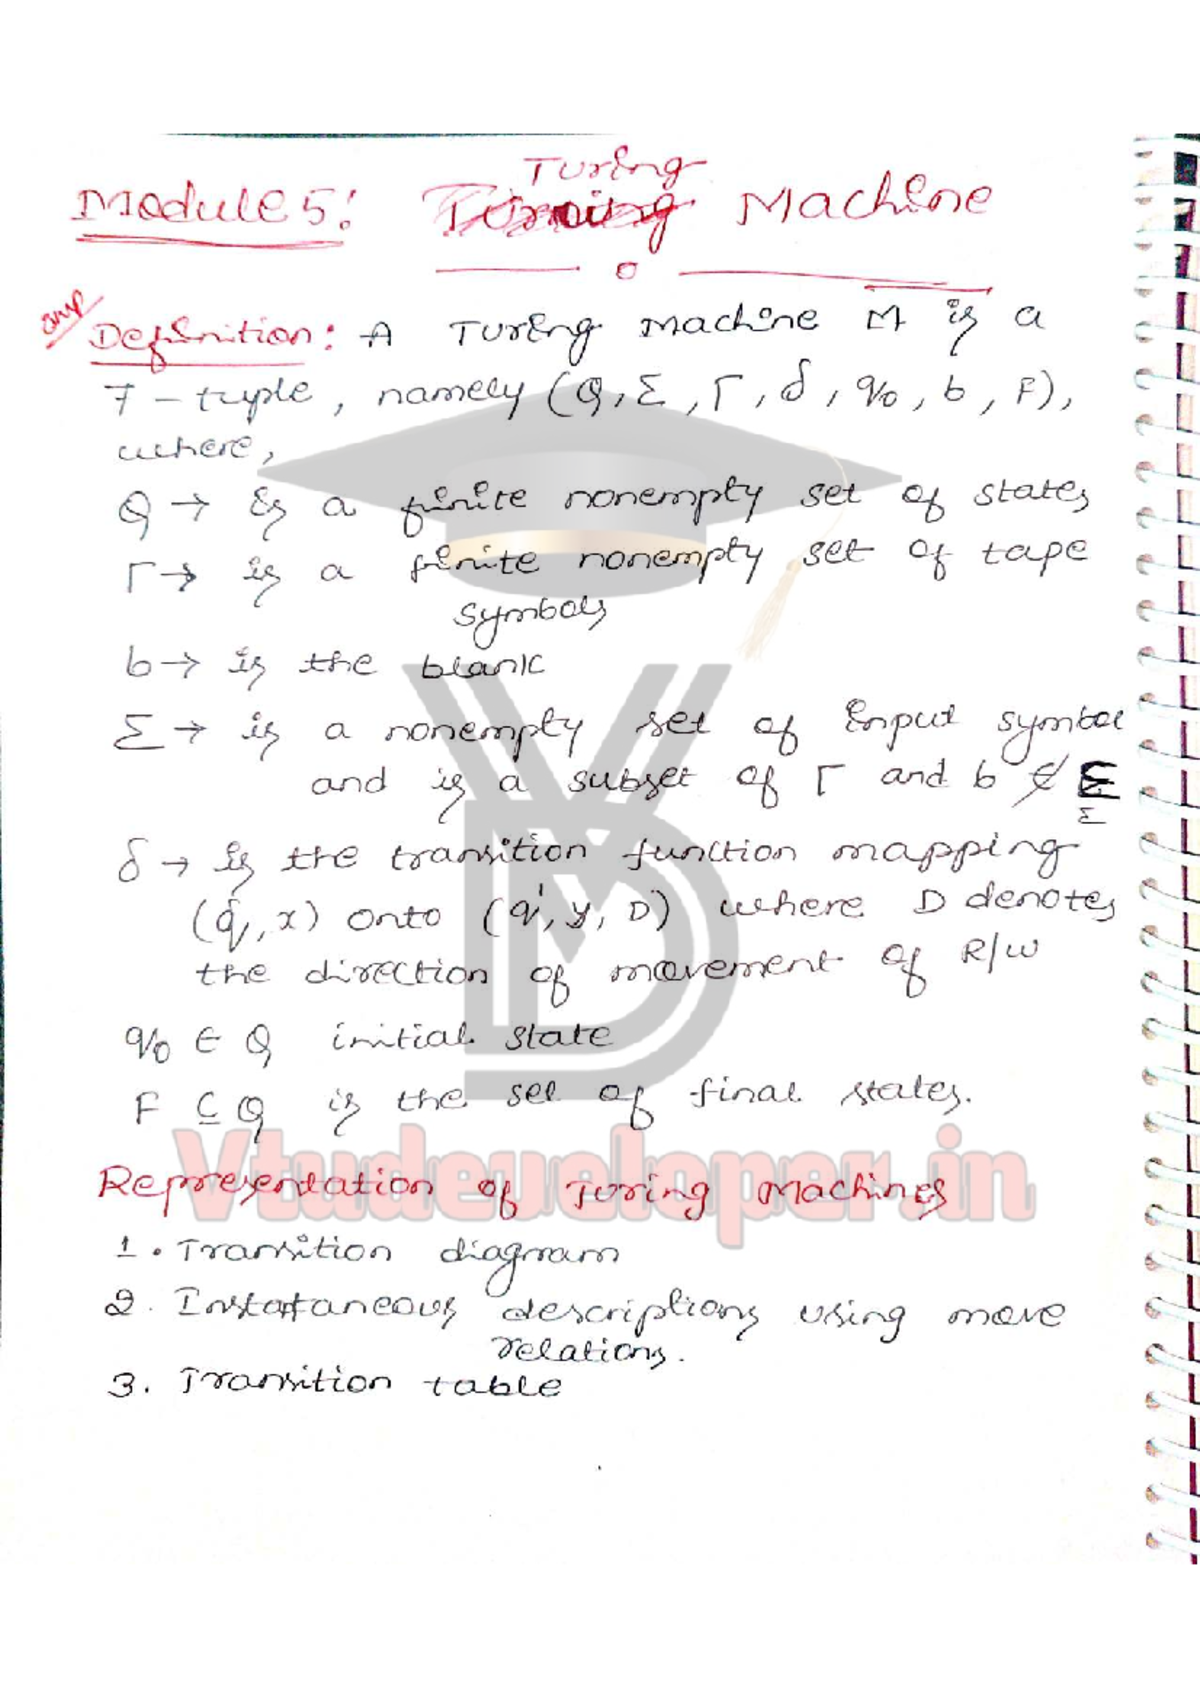 Turing
Module 5: Turning Machine
imp
Definition: A Turing Machine M is a
7-tuple, namely (Q, Σ, Γ, δ, q₀, b, F),
where,
Q → is a finite nonempty set of states
Γ → is a finite nonempty set of tape
symbols
b → is the blank
Σ → is a nonempty set of Input symbol
and is a subset of Γ and b ∉ Σ
Σ
δ → is the transition function mapping
(q, x) onto (q', y, D) where D denotes
the direction of movement of R/W
q₀ ∈ Q initial state
F ⊆ Q is the set of final states.
Vtudeveloper.in
Representation of Turing Machines
1. Transition diagram
2. Instataneous descriptions using move
relations.
3. Transition table